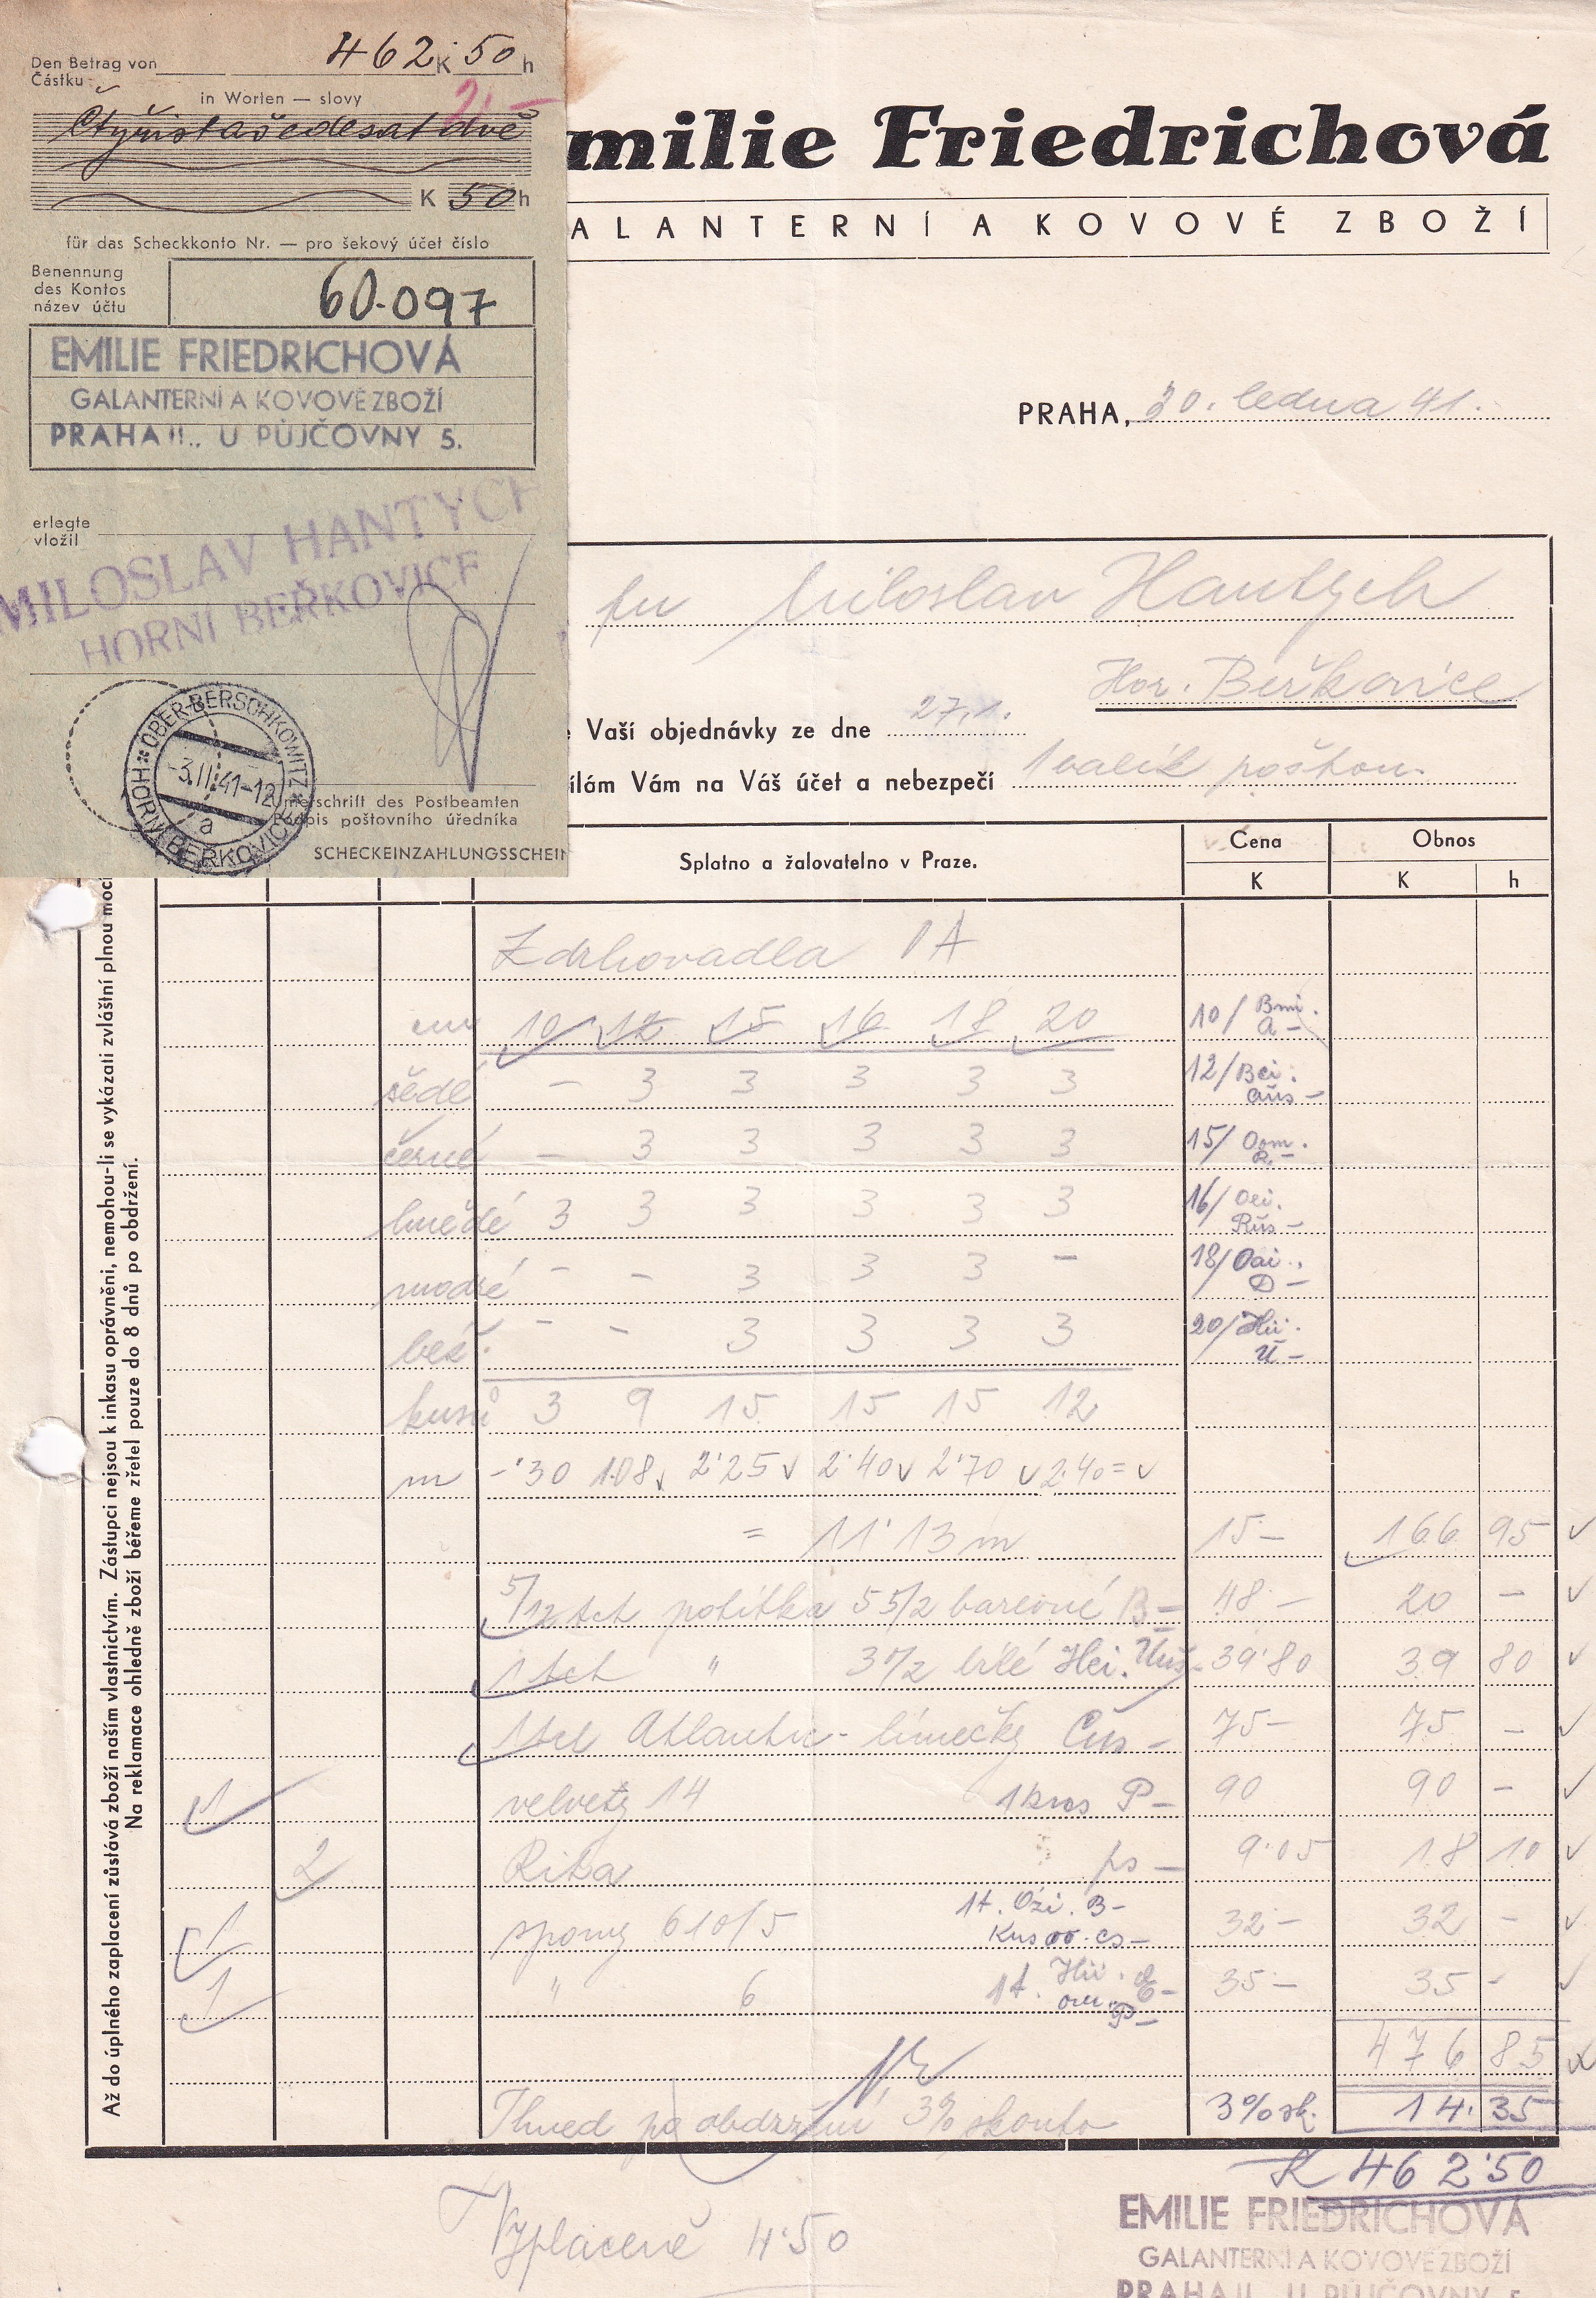 Den Betrag von
Částku
462 K 50 h
in Worten — slovy
2,—
Čtyřistašedesátdvě
K 50 h
für das Scheckkonto Nr. — pro šekový účet číslo
Benennung
des Kontos
název účtu
60.097
EMILIE FRIEDRICHOVÁ
GALANTERNÍ A KOVOVÉ ZBOŽÍ
PRAHA II., U PŮJČOVNY 5.
erlegte
vložil
MILOSLAV HANTYCH
HORNÍ BEŘKOVICE
OBER-BERSCHKOWITZ
-3.II.41-12
a
HORNÍ BEŘKOVICE
Unterschrift des Postbeamten
Podpis poštovního úředníka
SCHECKEINZAHLUNGSSCHEIN
milie Friedrichová
ALANTERNÍ A KOVOVÉ ZBOŽÍ
PRAHA, 30. ledna 41.
Miloslav Hantych
Hor. Beřkovice
Vaší objednávky ze dne 27.1.
ílám Vám na Váš účet a nebezpečí 1 balík poštou
Splatno a žalovatelno v Praze.
Cena
K
Obnos
K h
Až do úplného zaplacení zůstává zboží naším vlastnictvím. Zástupci nejsou k inkasu oprávněni, nemohou-li se vykázati zvláštní plnou mocí
Na reklamace ohledně zboží béřeme zřetel pouze do 8 dnů po obdržení.
Zdrhovadla 1A
cm 10 12 15 16 18 20 10/
šedé — 3 3 3 3 3 12/
černé — 3 3 3 3 3 15/
hnědé 3 3 3 3 3 3 16/
modré — — 3 3 3 — 18/
béž. — — 3 3 3 3 20/
kusů 3 9 15 15 15 12
m -'30 1.08 2'25 2'40 2'70 2.40 =
= 11'13 m 15— 166 95
5/12 tct potítka 5 5/2 barevné B— 48— 20 —
1 tct " 3/2 bílé 39'80 39 80
1 tct Atlantic- límečky Čus— 75— 75 —
1 velvety 14 1 kros P— 90 90 —
2 Rika ps— 9.05 18 10
1 spony 610/5 32— 32 —
1 " 6 35— 35 —
476 85
Ihned po obdržení 3% skonto 3% sk. 14.35
K 462'50
Vyplaceně 4'50
EMILIE FRIEDRICHOVÁ
GALANTERNÍ A KOVOVÉ ZBOŽÍ
PRAHA II., U PŮJČOVNY 5